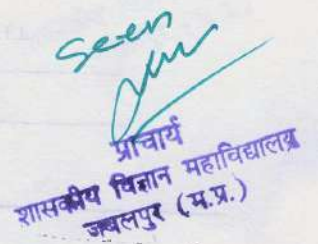 Seen
प्राचार्य
शासकीय विज्ञान महाविद्यालय
जबलपुर (म.प्र.)